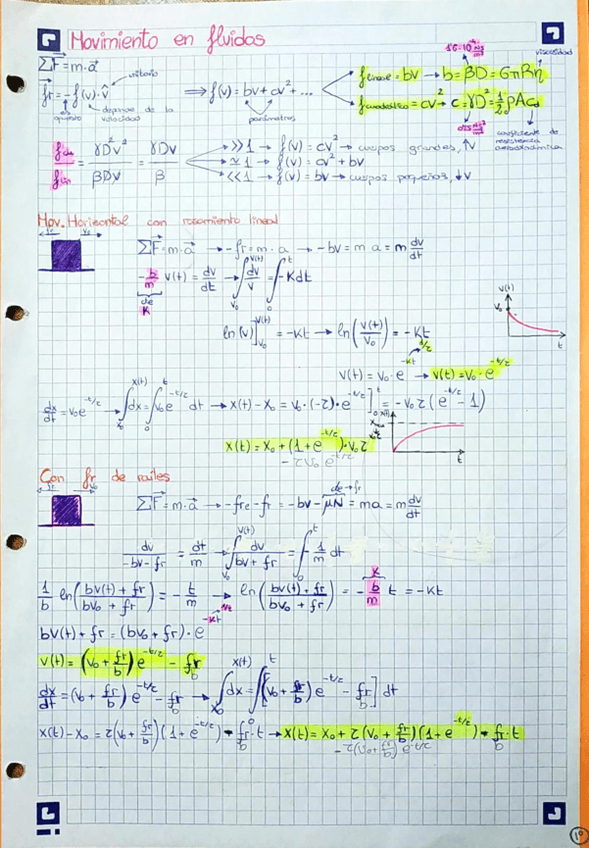 Movimiento en fluidos
ΣF⃗ = m·a⃗
1'6·10⁻⁴ Ns/m²
viscosidad
unitario
f⃗r = -f(v)·v̂ ⟹ f(v) = bv + cv² + ...
f lineal = bv → b = βD = 6πRη
opuesto
depende de la velocidad
parámetros
f cuadrático = cv² → c = γD² = ½ρAc_d
coeficiente de resistencia aerodinámica
f cua / f lin = γD²v² / βDv = γDv / β
>>1 → f(v) = cv² → cuerpos grandes, ↑v
≃1 → f(v) = cv² + bv
<<1 → f(v) = bv → cuerpos pequeños, ↓v
Mov. Horizontal con rozamiento lineal
fr v₀
ΣF⃗ = m·a⃗ → -fr = m·a → -bv = m a = m dv/dt
-b/m v(t) = dv/dt → ∫_{v₀}^{v(t)} dv/v = ∫_0^t -Kdt
de K
v(t) v₀ t
ln(v)]_{v₀}^{v(t)} = -Kt → ln(v(t)/v₀) = -Kt
1/τ
v(t) = v₀·e^{-Kt} → v(t) = v₀·e^{-t/τ}
dx/dt = v₀e^{-t/τ} → ∫_{x₀}^{x(t)} dx = ∫_0^t v₀e^{-t/τ} dt → x(t) - x₀ = v₀·(-τ)·e^{-t/τ}]_0^t = -v₀τ(e^{-t/τ} - 1)
x(t) t
x(t) = x₀ + (1 + e^{-t/τ})·v₀τ
-τv₀ e^{-t/τ}
Con fr de raíles
fr v₀
ΣF⃗ = m·a⃗ → -fre - fr = -bv - μN = ma = m dv/dt
de → fr
dv / -bv - fr = dt/m → ∫_{v₀}^{v(t)} dv / bv + fr = ∫_0^t -1/m dt
1/b ln(bv(t) + fr / bv₀ + fr) = -t/m → ln(bv(t) + fr / bv₀ + fr) = -b/m t = -Kt
K
bv(t) + fr = (bv₀ + fr)·e^{-Kt}
v(t) = (v₀ + fr/b) e^{-t/τ} - fr/b
dx/dt = (v₀ + fr/b) e^{-t/τ} - fr/b → ∫_{x₀}^{x(t)} dx = ∫_0^t [(v₀ + fr/b) e^{-t/τ} - fr/b] dt
x(t) - x₀ = τ(v₀ + fr/b)(1 + e^{-t/τ}) - fr/b·t → x(t) = x₀ + τ(v₀ + fr/b)(1 + e^{-t/τ}) - fr/b·t
-τ(v₀ + fr/b) e^{-t/τ}
1º